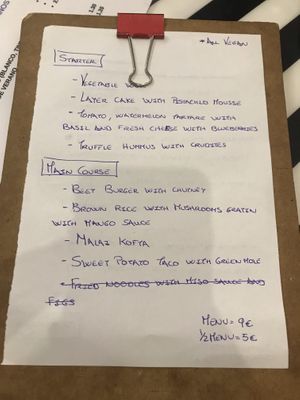 * ALL VEGAN
STARTER
- VEGETABLE
- LAYER CAKE WITH PISTACHIO MOUSSE
- TOMATO, WATERMELON TARTARE WITH
BASIL AND FRESH CHEESE WITH BLUEBERRIES
- TRUFFLE HUMMUS WITH CRUDITES
MAIN COURSE
- BEET BURGER WITH CHUTNEY
- BROWN RICE WITH MUSHROOMS GRATIN
WITH MANGO SAUCE
- MALAI KOFTA
- SWEET POTATO TACO WITH GREEN MOLE
- FRIED NOODLES WITH MISO SAUCE AND
FIGS
MENU = 9€
1/2 MENU = 5€